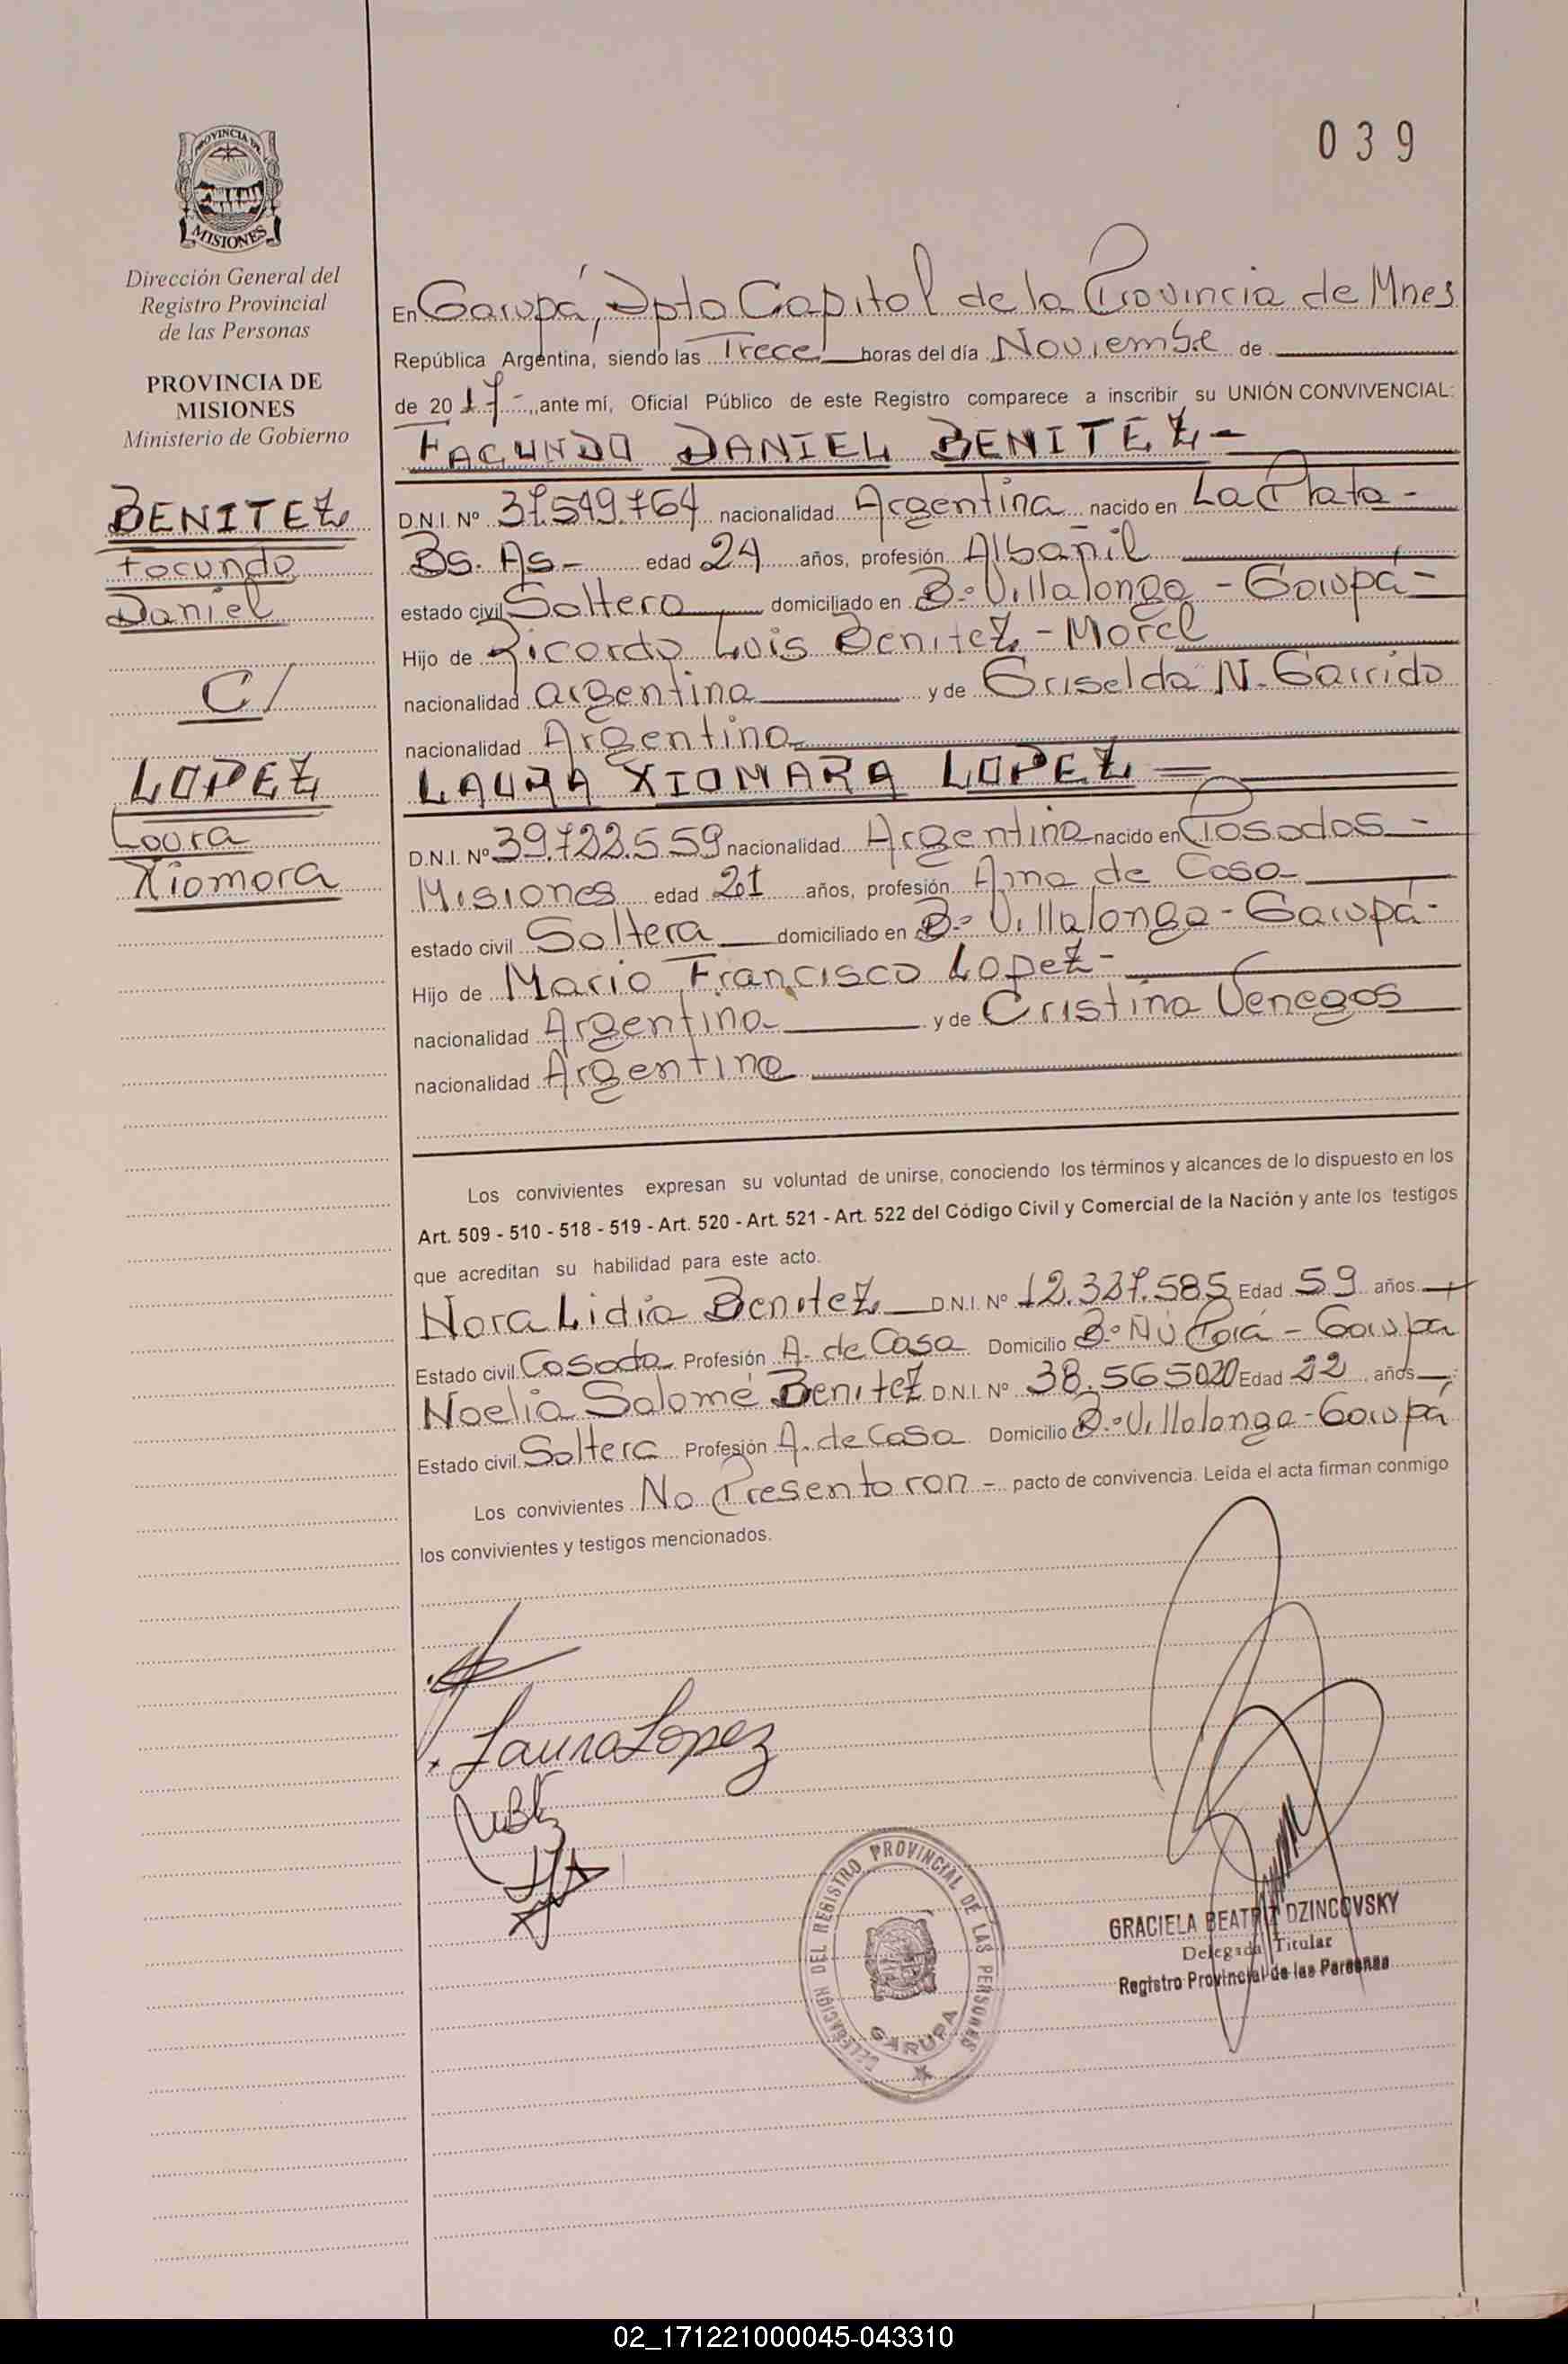 039
PROVINCIA DE
MISIONES
Dirección General del
Registro Provincial
de las Personas
PROVINCIA DE
MISIONES
Ministerio de Gobierno
BENITEZ
Facundo
Daniel
C/
LOPEZ
Laura
Xiomara
En Garupá, Dpto Capital de la Provincia de Mnes
República Argentina, siendo las Trece horas del día Noviembre de
de 2017-, ante mí, Oficial Público de este Registro comparece a inscribir su UNIÓN CONVIVENCIAL:
FACUNDO DANIEL BENITEZ-
D.N.I. Nº 37.549.764 nacionalidad Argentina nacido en La Plata-
Bs. As- edad 24 años, profesión Albañil
estado civil Soltero domiciliado en Bº Villalonga - Garupá-
Hijo de Ricardo Luis Benitez - Morel
nacionalidad argentina y de Griselda N. Garrido
nacionalidad Argentina
LAURA XIOMARA LOPEZ
D.N.I. Nº 39.722.559 nacionalidad Argentina nacido en Posadas-
Misiones edad 21 años, profesión Ama de Casa
estado civil Soltera domiciliado en Bº Villalonga - Garupá-
Hijo de Mario Francisco Lopez-
nacionalidad Argentina y de Cristina Venegas
nacionalidad Argentina
Los convivientes expresan su voluntad de unirse, conociendo los términos y alcances de lo dispuesto en los
Art. 509 - 510 - 518 - 519 - Art. 520 - Art. 521 - Art. 522 del Código Civil y Comercial de la Nación y ante los testigos
que acreditan su habilidad para este acto.
Nora Lidia Benitez D.N.I. Nº 12.327.585 Edad 59 años
Estado civil Casada Profesión A. de Casa Domicilio Bº Ñu Porá - Garupá
Noelia Salomé Benitez D.N.I. Nº 38.565020 Edad 22 años
Estado civil Soltera Profesión A. de Casa Domicilio Bº Villalonga - Garupá
Los convivientes No Presentaron - pacto de convivencia. Leída el acta firman conmigo
los convivientes y testigos mencionados.
Laura Lopez
DELEGACION DEL REGISTRO PROVINCIAL DE LAS PERSONAS
GARUPA
GRACIELA BEATRIZ DZINCOVSKY
Delegada Titular
Registro Provincial de las Personas
02_171221000045-043310